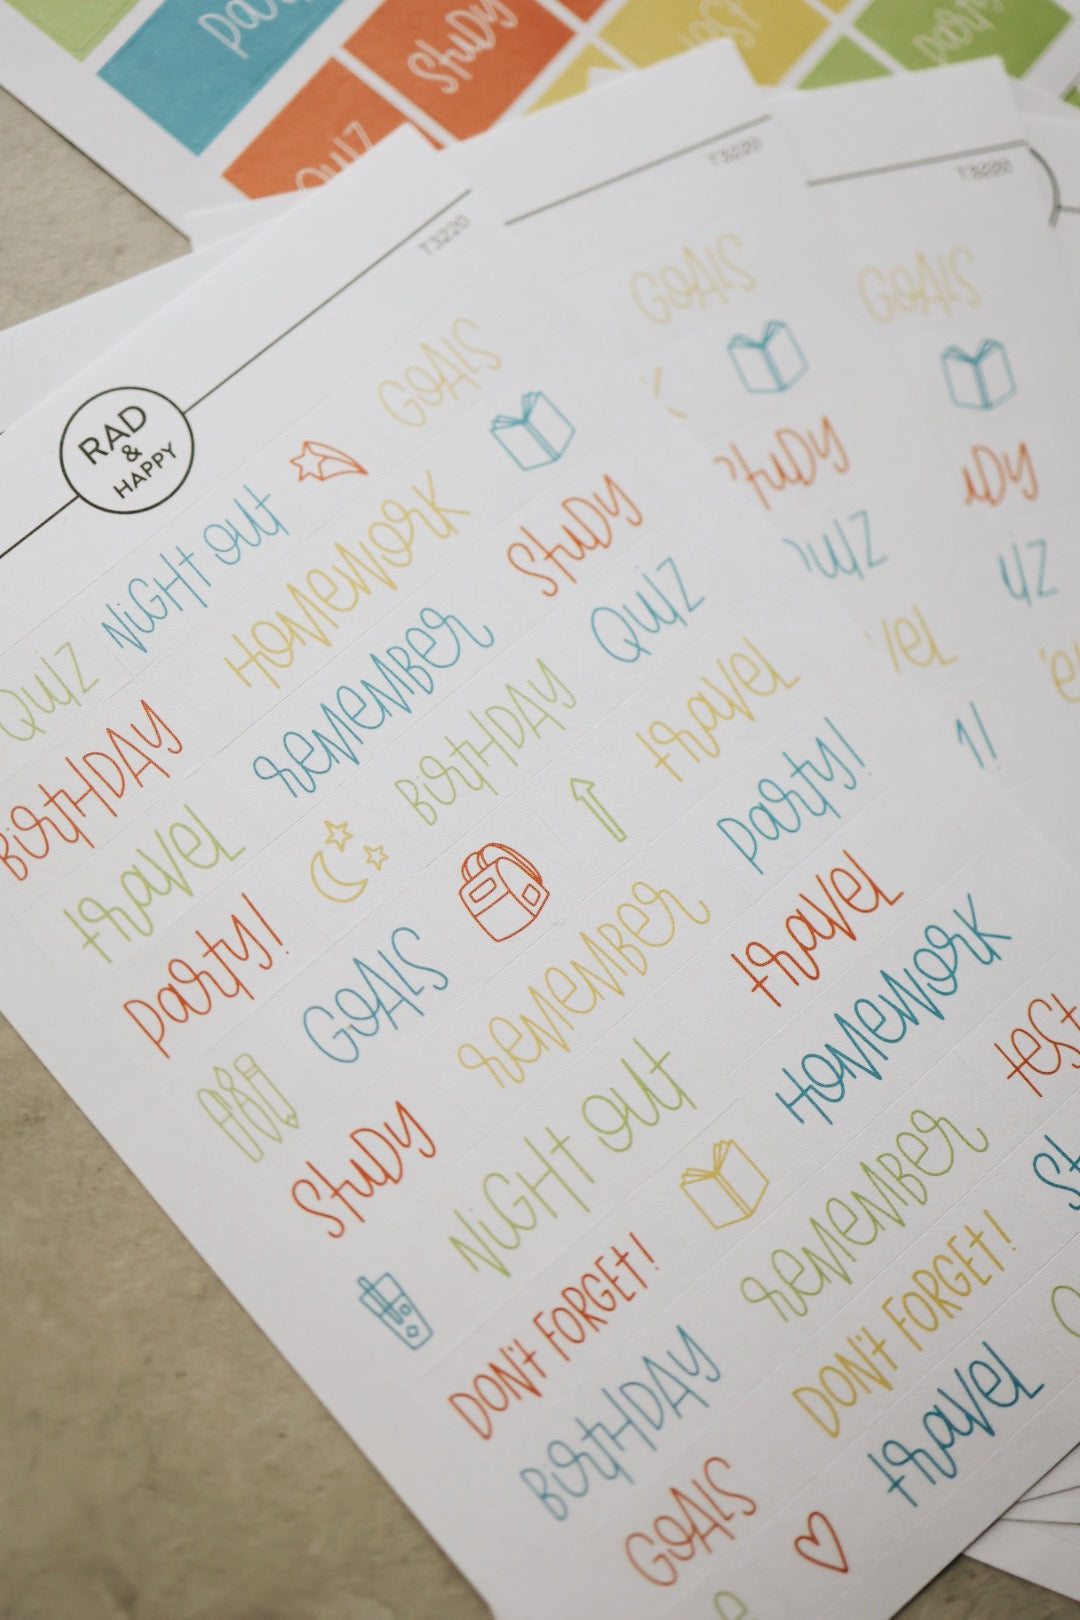 party
study
test
party
quiz
T3220
T3220
T3220
RAD
&
HAPPY
GOALS
GOALS
GOALS
NIGHT OUT
HOMEWORK
STUDY
STUDY
UDY
QUIZ
BIRTHDAY
REMEMBER
QUIZ
QUIZ
UIZ
TRAVEL
BIRTHDAY
TRAVEL
VEL
Party!
GOALS
REMEMBER
TRAVEL
Party!
STUDY
NIGHT OUT
HOMEWORK
TEST
DON'T FORGET!
REMEMBER
St
BIRTHDAY
DON'T FORGET!
GOALS
TRAVEL